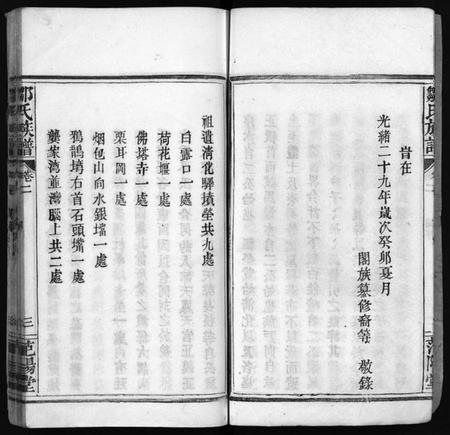 鄒氏族譜
昔在
光緒二十九年歲次癸卯夏月
闔族纂修裔等 敬錄
范陽堂
祖遺清化驛墳塋共九處
白露口一處
荷花堰一處
佛塔寺一處
栗耳岡一處
烟包山向水銀壋一處
鴉鵲塆右首石頭嘴一處
龔家灣並灣腦上共二處
鄒氏族譜
卷二
三
范陽堂